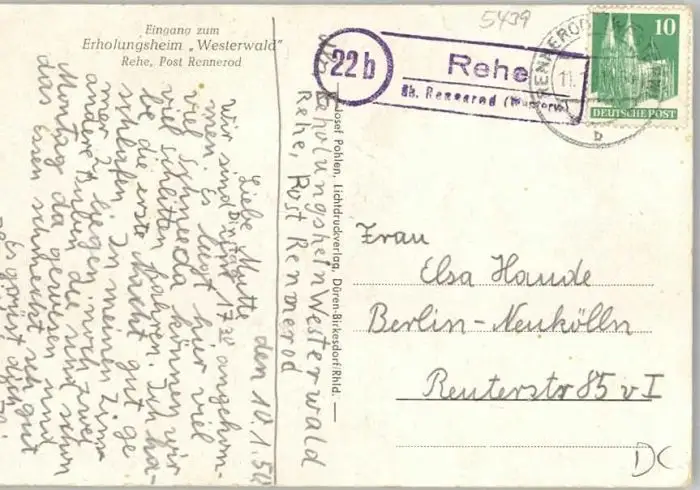 Eingang zum
Erholungsheim „Westerwald"
Rehe, Post Rennerod
5439
22b
Rehe
üb. Rennerod (Westerw)
RENNEROD
11.
b
10
DEUTSCHE POST
Josef Pohlen, Lichtdruckverlag, Düren-Birkesdorf/Rhld.
Erholungsheim Westerwald
Rehe, Post Rennerod
den 10.1.50
Liebe Mutti
Dinstag
wir sind um 17 30 angekom-
men. Es liegt hir viel
viel Schnee da können wir
viel schlitten fahren. Ich ha-
be die erste Nacht gut ge
schlafen. In meinen Zim-
mer 2 liegen noch zwei
andere Buben die sind schon
Montag da gewesen und
das Essen schmeckt sehr gut
Es grüßt dich
Frau
Elsa Haude
Berlin-Neukölln
Reuterstr 85 v I
DC